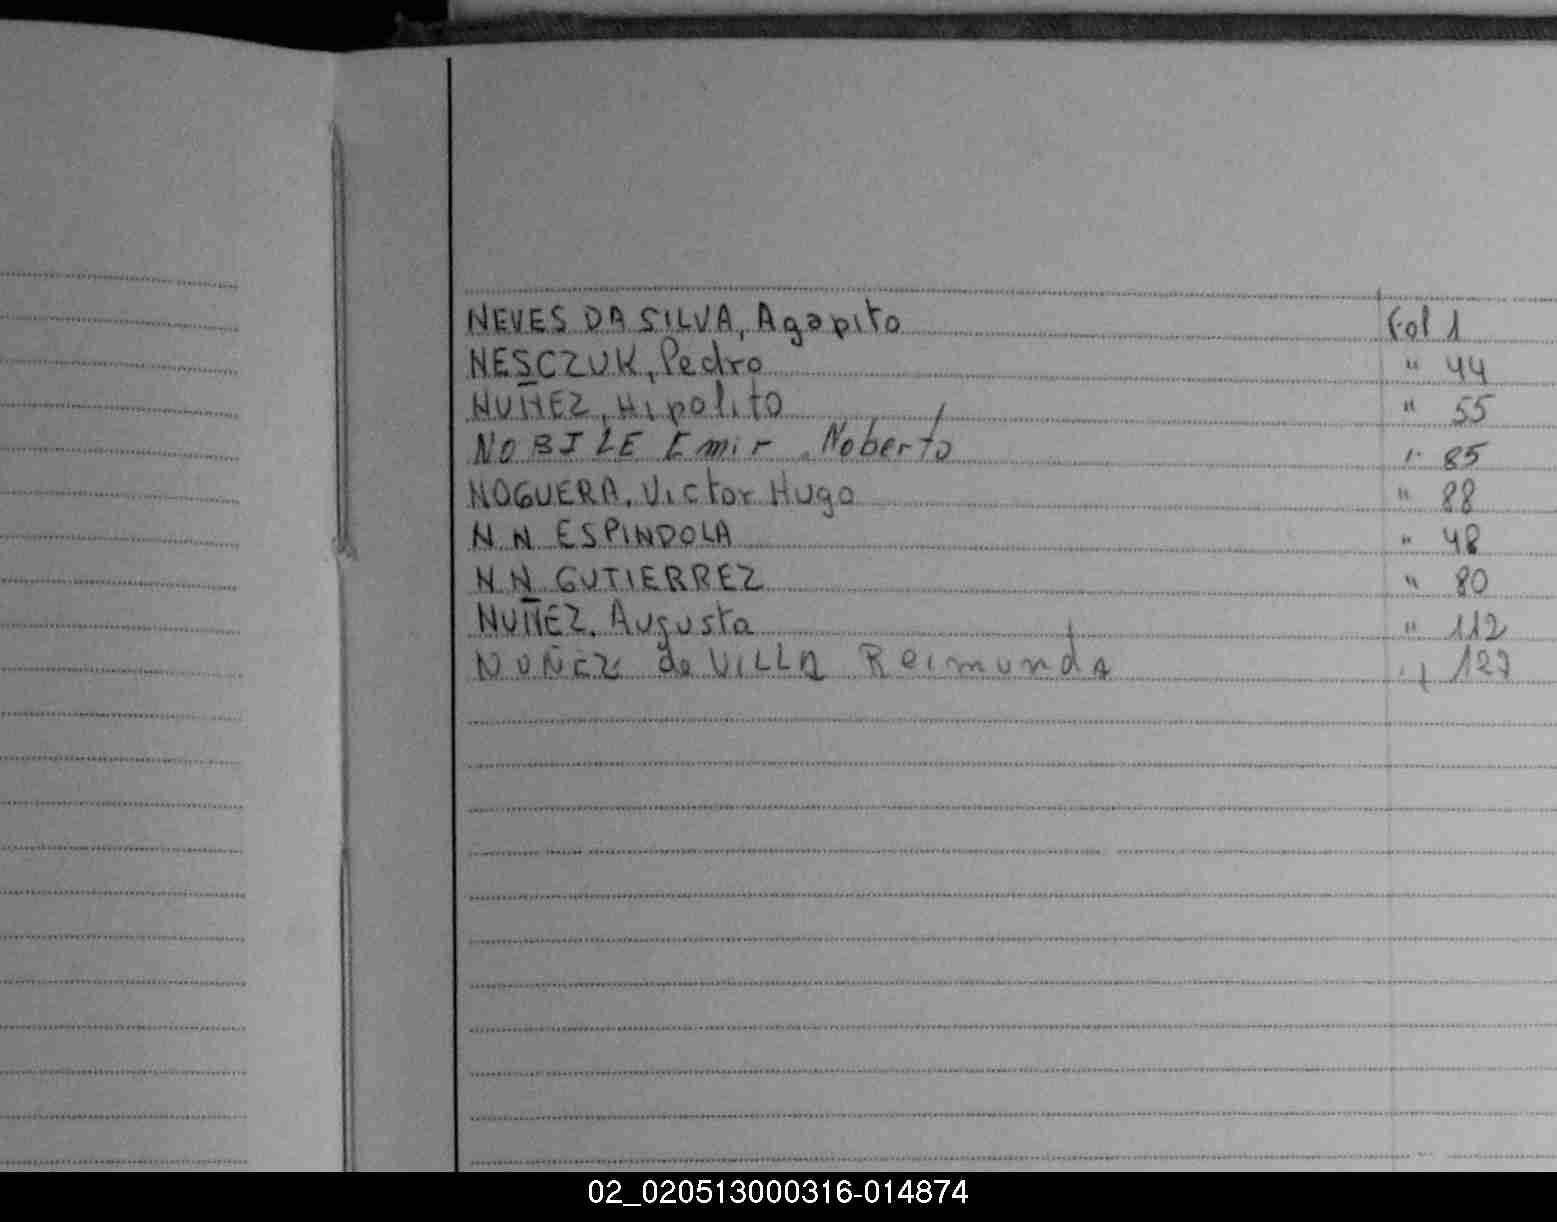 NEVES DA SILVA, Agapito Fol 1
NESCZUK, Pedro " 44
NUÑEZ, Hipolito " 55
NOBILE Emir Noberto " 85
NOGUERA, Victor Hugo " 88
N N ESPINDOLA " 48
N N GUTIERREZ " 80
NUÑEZ, Augusta " 112
NUÑEZ de VILLA Reimunda " 127
02_020513000316-014874